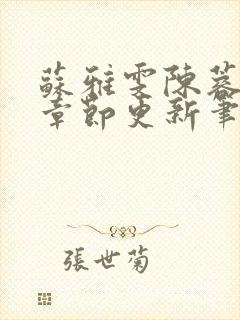 蘇雅雯陳蓉
章節更新筆
張世菊